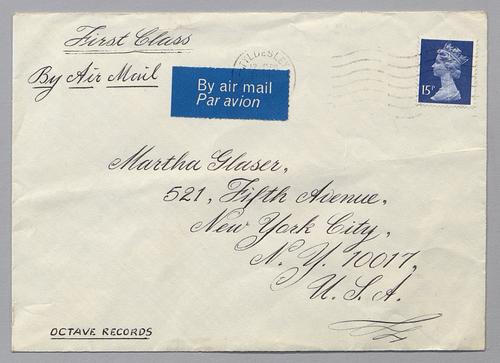 First Class
By Air Mail
TYLDESLEY
By air mail
Par avion
15P
Martha Glaser,
521, Fifth Avenue,
New York City,
N. Y. 10017,
U. S. A.
OCTAVE RECORDS